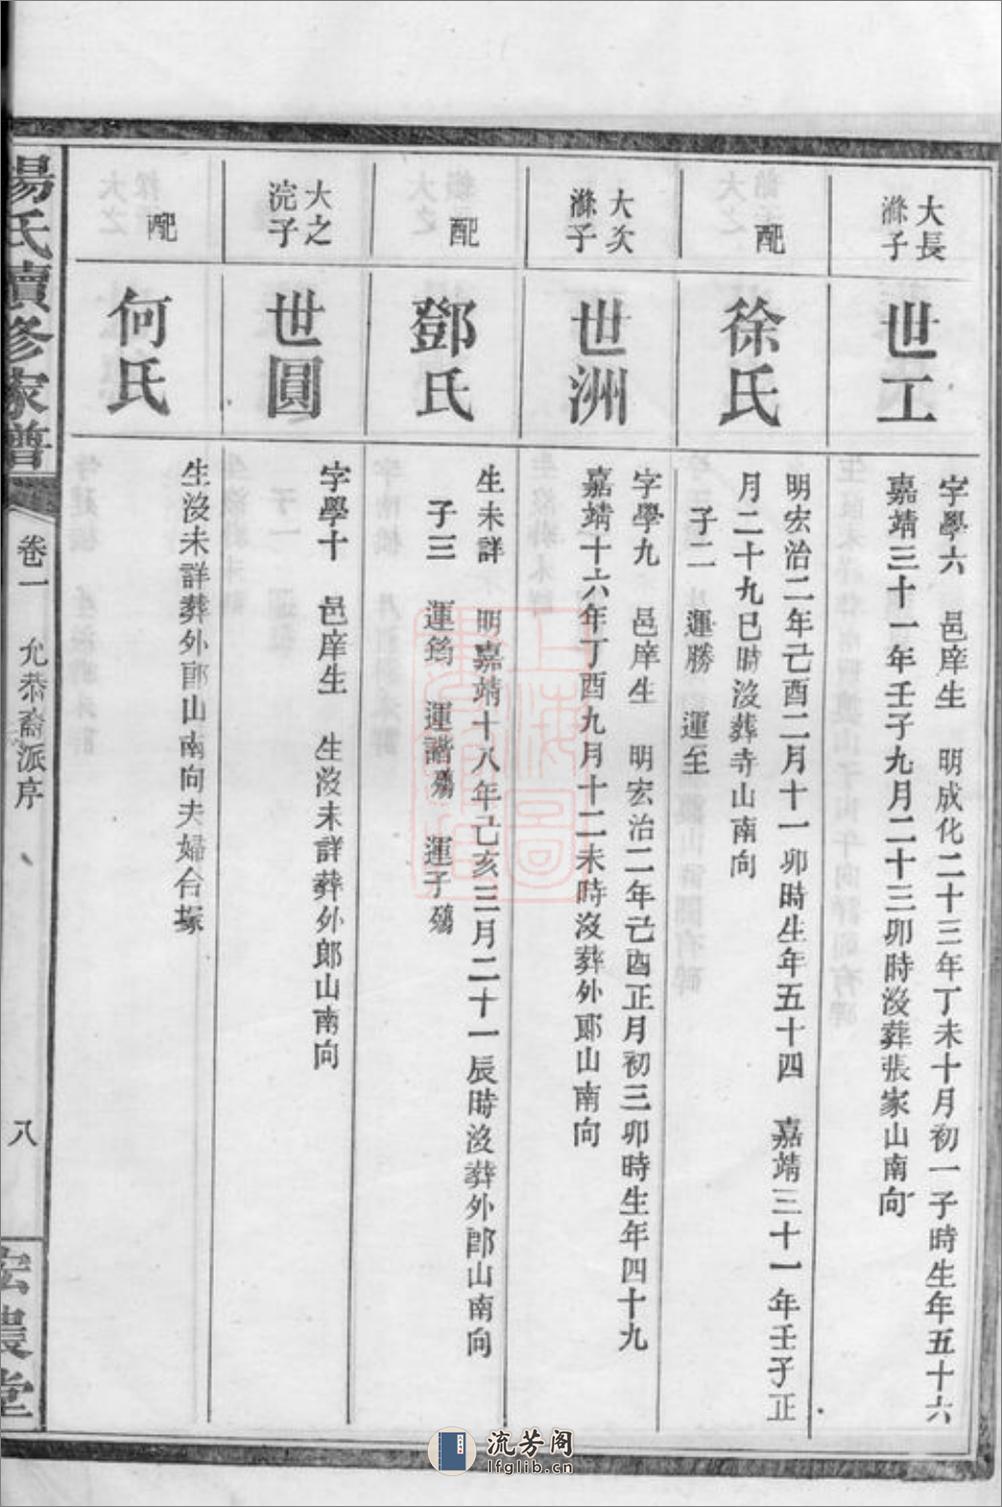 大滌長子
世工
字學六　邑庠生　明成化二十三年丁未十月初一子時生年五十六
嘉靖三十一年壬子九月二十三卯時沒葬張家山南向
配
徐氏
明宏治二年己酉二月十一卯時生年五十四　嘉靖三十一年壬子正
月二十九巳時沒葬寺山南向
子二　運勝　運至
大滌次子
世洲
字學九　邑庠生　明宏治二年己酉正月初三卯時生年四十九
嘉靖十六年丁酉九月十二未時沒葬外郎山南向
配
鄧氏
生未詳　明嘉靖十八年己亥三月二十一辰時沒葬外郎山南向
子三　運筠　運諧殤　運子殤
大浣之子
世圓
字學十　邑庠生　生沒未詳葬外郎山南向
配
何氏
生沒未詳葬外郎山南向夫婦合塚
楊氏續修家譜
卷一
允恭裔派序
八
宏農堂
流芳阁
lfglib.cn